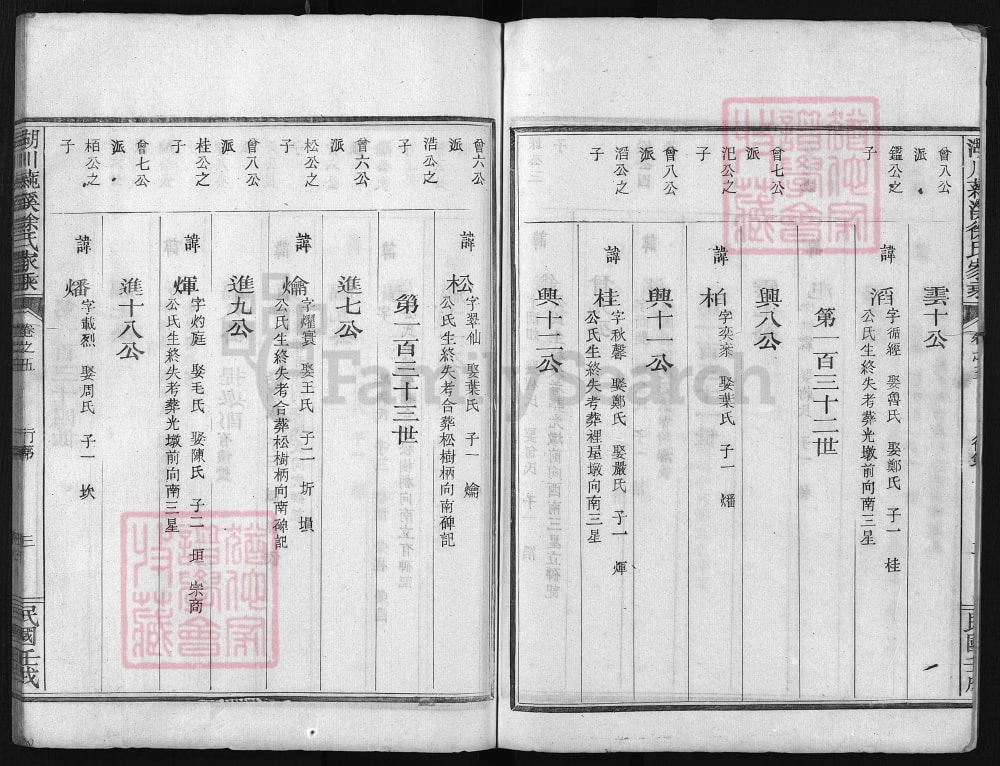 曾八公
派
鑑公之
子
雲十公
諱滔 字循經 娶魯氏 娶鄭氏 子一 桂
公氏生終失考葬光墩前向南三星
第一百三十二世
曾七公
派
汜公之
子
興八公
諱柏 字奕榮 娶葉氏 子一 燔
曾八公
派
滔公之
子
興十一公
諱桂 字秋馨 娶鄭氏 娶嚴氏 子一 煇
公氏生終失考葬裡屋墩向南三星
興十二公
曾六公
派
浩公之
子
諱松 字翠仙 娶葉氏 子一 爚
公氏生終失考合葬松樹柄向南碑記
第一百三十三世
曾六公
派
松公之
子
進七公
諱爚 字燿實 娶王氏 子二 圻 塤
公氏生終失考合葬松樹柄向南碑記
曾八公
派
桂公之
子
進九公
諱煇 字灼庭 娶毛氏 娶陳氏 子二 垣 崇商
公氏生終失考葬光墩前向南三星
曾七公
派
栢公之
子
進十八公
諱燔 字載烈 娶周氏 子一 坎
徐氏家乘 卷之五 行第 三 民國壬戌
FamilySearch